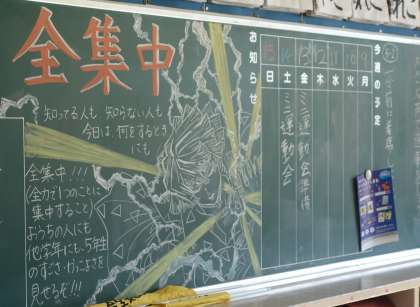 全集中
知ってる人も、知らない人も
今日は、何をするとき
にも
全集中!!!
(全力で1つのことに
集中すること)
おうちの人にも
他学年にも、5年生
のすごさ・かっこよさを
見せろぞ!!
お知らせ
今週の予定
月
火
水
木
金
土
日
9
10
11
12
13
14
15
三運動会準備
三運動会